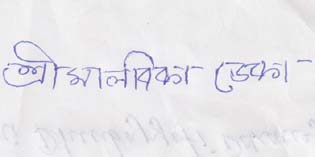 শ্ৰীমালবিকা ডেকা